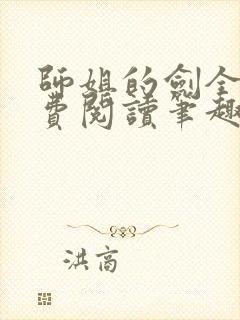 師姐的劍全
費閱讀筆趣
洪高